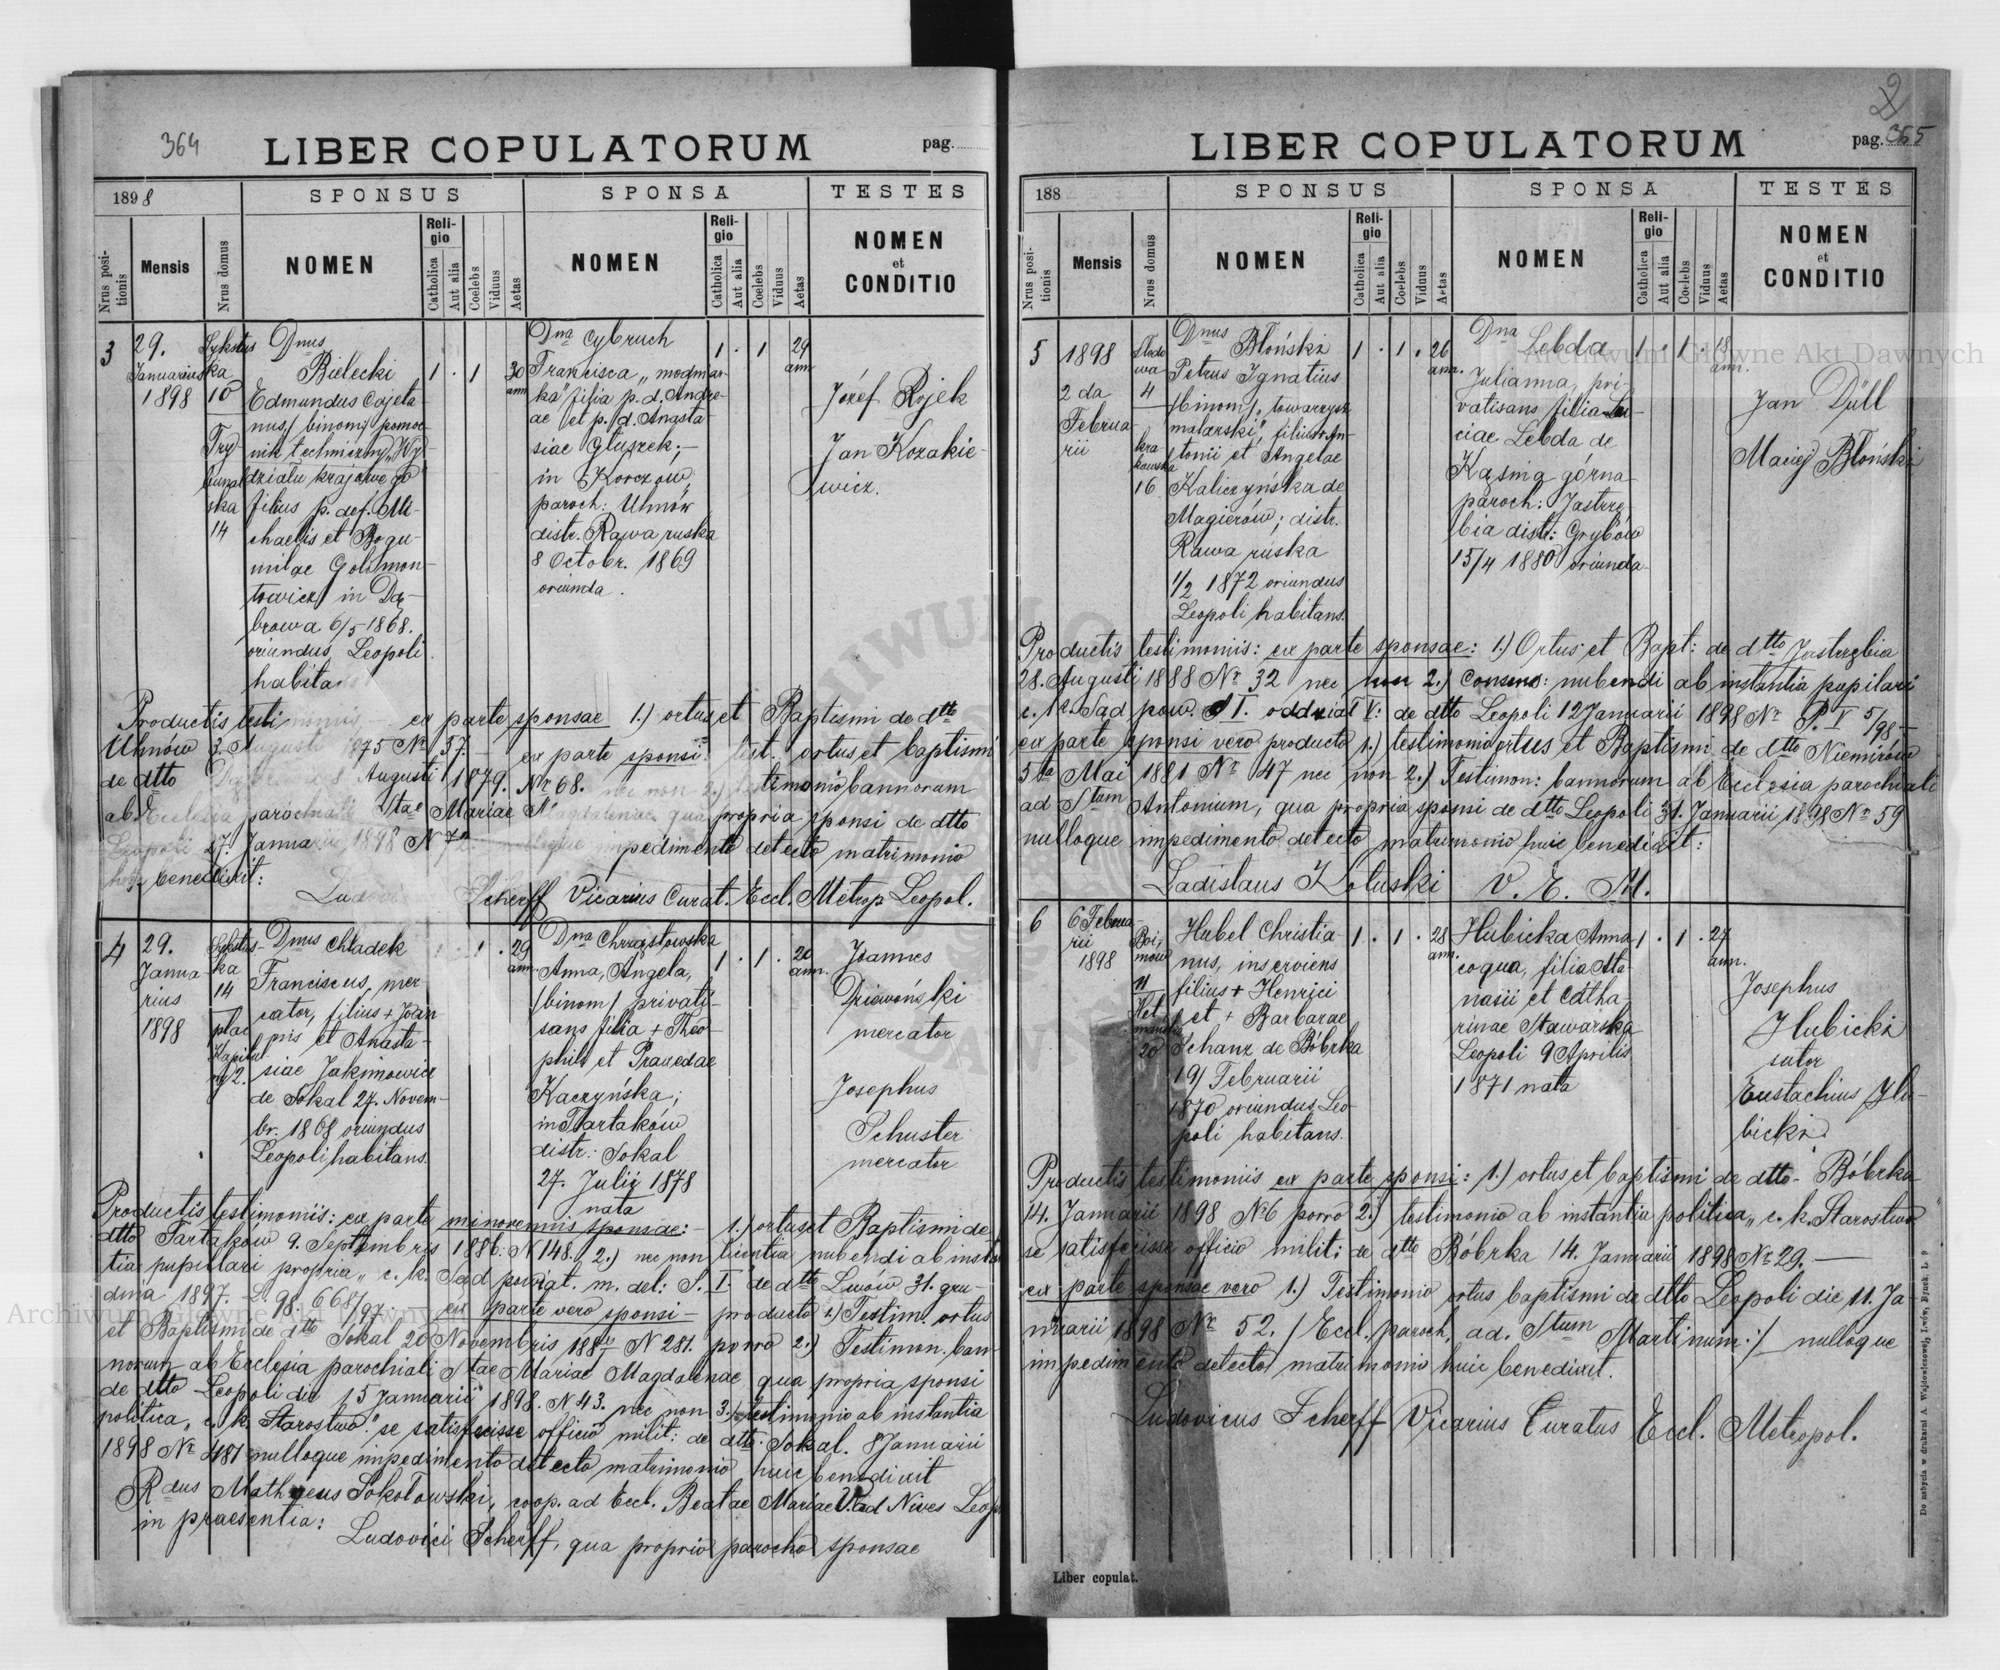 364
LIBER COPULATORUM
pag.
1898
SPONSUS
SPONSA
TESTES
Nrus positionis
Mensis
Nrus domus
NOMEN
Religio
Catholica
Aut alia
Coelebs
Viduus
Aetas
NOMEN
Religio
Catholica
Aut alia
Coelebs
Viduus
Aetas
NOMEN
et
CONDITIO
3
29.
Januarius
1898
Sykstus
ka
10
Try
bunal
ska
14
Dnus
Bielecki
Edmundus Cajeta-
nus / binom / pomoc-
nik techniczny „Wy-
działu krajowego"
filius p. def. Mi-
chaelis et Bogu-
milae Golimon-
towicz / in Dą-
browa 6/5 1868.
oriundus, Leopoli
habita
1 . 1
30
ann
Dna Cybruch
Francisca „modniar-
ka" filia p. d. Andre-
ae et p. d. Anasta-
siae Gluszek;
in Korczów,
paroch: Uhnów
distr. Rawa ruska
8 Octobr. 1869
oriunda.
1 . 1
29
ann
Józef Rojek
Jan Kozakie-
wicz.
Productis testimoniis, - ex parte sponsae 1.) ortus et Baptismi de dtto
Uhnów 3. Augusti 1875 Nr 57. - ex parte sponsi: test. ortus et baptismi
de dtto 8 Augusti 1879. Nr 68. nec non 2.) testimonio bannorum
ab Ecclesia parochiali Stae Mariae Magdalenae qua propria sponsi de dtto
Leopoli 27. Januarii 1898 N nulloque impedimento detecto matrimonio
huic benedixit:
Ludovi Scherff Vicarius Curat. Eccl. Metrop Leopol.
4
29.
Janua-
rius
1898
Sykstus-
ka
14
plac
Kapitul
ny 2.
Dnus Chladek
Franciscus, mer
cator, filius + Joan
nis et Anasta-
siae Jakimowicz
de Sokal 27. Novem-
br. 1868 oriundus
Leopoli habitans.
1 . 1 . 29
ann.
Dna Chrząstowska
Anna, Angela,
/binom/ privati-
sans filia + Theo-
phili et Praxedae
Kaczyńska;
in Tartaków
distr: Sokal
27. Julii 1878
nata
1 . 1 . 20
ann.
Joannes
Dziewoński
mercator
Josephus
Schuster
mercator
Productis testimoniis: ex parte minorennis sponsae: - 1.) ortus et Baptismi de
dtto Tartaków 9. Septembris 1886: N 148. 2.) nec non licentia nubendi ab instan
tia pupillari propria „c. k. Sąd powiat. m. del: S. I." de dtto Lwów 31. gru-
dnia 1897. 98. 668/97. ex parte vero sponsi - producto 1.) Testim. ortus
et Baptismi de dtto Sokal 20 Novembris 188 N 281. porro 2.) Testimon. ban
norum ab Ecclesia parochiali Stae Mariae Magdalenae qua propria sponsi
de dtto Leopoli die 15 Januarii 1898. N 43. nec non 3.) testimonio ab instantia
politica „c. k. Starostwo" se satisfecisse officio milit: de dtto: Sokal. 8 Januarii
1898 Nr 481 nulloque impedimento detecto matrimonio huic benedixit
Rdus Mathaeus Sokołowski, coop. ad Eccl. Beatae Mariae V. ad Nives Leop
in praesentia:
Ludovici Scherff, qua proprio parocho sponsae
2
LIBER COPULATORUM
pag. 365
188
SPONSUS
SPONSA
TESTES
Nrus positionis
Mensis
Nrus domus
NOMEN
Religio
Catholica
Aut alia
Coelebs
Viduus
Aetas
NOMEN
Religio
Catholica
Aut alia
Coelebs
Viduus
Aetas
NOMEN
et
CONDITIO
5
1898
2 da
Februa-
rii
4
kra
kowska
16
Dnus Błoński
Petrus Ignatius
/binom/ „towarzysz
malarski", filius + An-
tonii et Angelae
Kaliczyńska de
Magierów; distr.
Rawa ruska
1/2 1872 oriundus
Leopoli habitans.
1 . 1 . 26
ann.
Dna Lebda
Julianna, pri-
vatisans filia Lu-
ciae Lebda de
Kąsina górna
paroch: Jastrzę-
bia distr: Grybów
15/4 1880 oriunda
1 . 1 . 18
ann.
Jan Düll
Maciej Błoński
Productis testimoniis: ex parte sponsae: 1.) Ortus et Bapt: de dtto Jastrzębia
28. Augusti 1888 Nr 32 nec non 2.) Consens: nubendi ab instantia pupilari
c. k. Sąd pow. S I. oddział V: de dtto Leopoli 12 Januarii 1898 Nr P. V 5/98 -
ex parte sponsi vero producto 1.) testimonio ortus et Baptismi de dtto Niemirów
5ta Mai 1881 Nr 47 nec non 2.) Testimon: bannorum ab Ecclesia parochiali
ad Stam Antonium, qua propria sponsi de dtto Leopoli 31. Januarii 1898 Nr 59
nulloque impedimento detecto matrimonio huic benedixit:
Ladislaus V. E. M.
6
6 Februa-
rii
1898
Boi,
mów
11
Het,
mańska
20
Hubel Christia-
nus, inserviens
filius + Henrici
et + Barbarae
Schanz de Bóbrka
19/ Februarii
1870 oriundus, Leo-
poli habitans.
1 . 1 . 28
ann.
Hubicka Anna
coqua, filia Ata-
nasii et Catha
rinae Stawarska
Leopoli 9 Aprilis
1871 nata
1 . 1 . 27
ann.
Josephus
Hubicki
sutor
Eustachius Hu-
bicki
Productis testimoniis ex parte sponsi: 1.) ortus et baptismi de dtto - Bóbrka
14. Januarii 1898 N 6 porro 2.) testimonio ab instantia politica „c. k. Starostwo
se satisfecisse officio milit: de dtto Bóbrka 14. Januarii 1898 Nr 29. -
ex parte sponsae vero 1.) Testimonio ortus baptismi de dtto Leopoli die 11. Ja-
nuarii 1898 Nr 52. / Eccl. paroch. ad. Stum Martinum: / nulloque
impedimento detecto matrimonio huic benedixit.
Ludovicus Scherff Vicarius Curatus Eccl. Metropol.
Liber copulat.
Do nabycia w drukarni A. Wajdowiczowej, Lwów, Rynek, l. 9
Archiwum Główne Akt Dawnych
Archiwum Główne Akt Dawnych